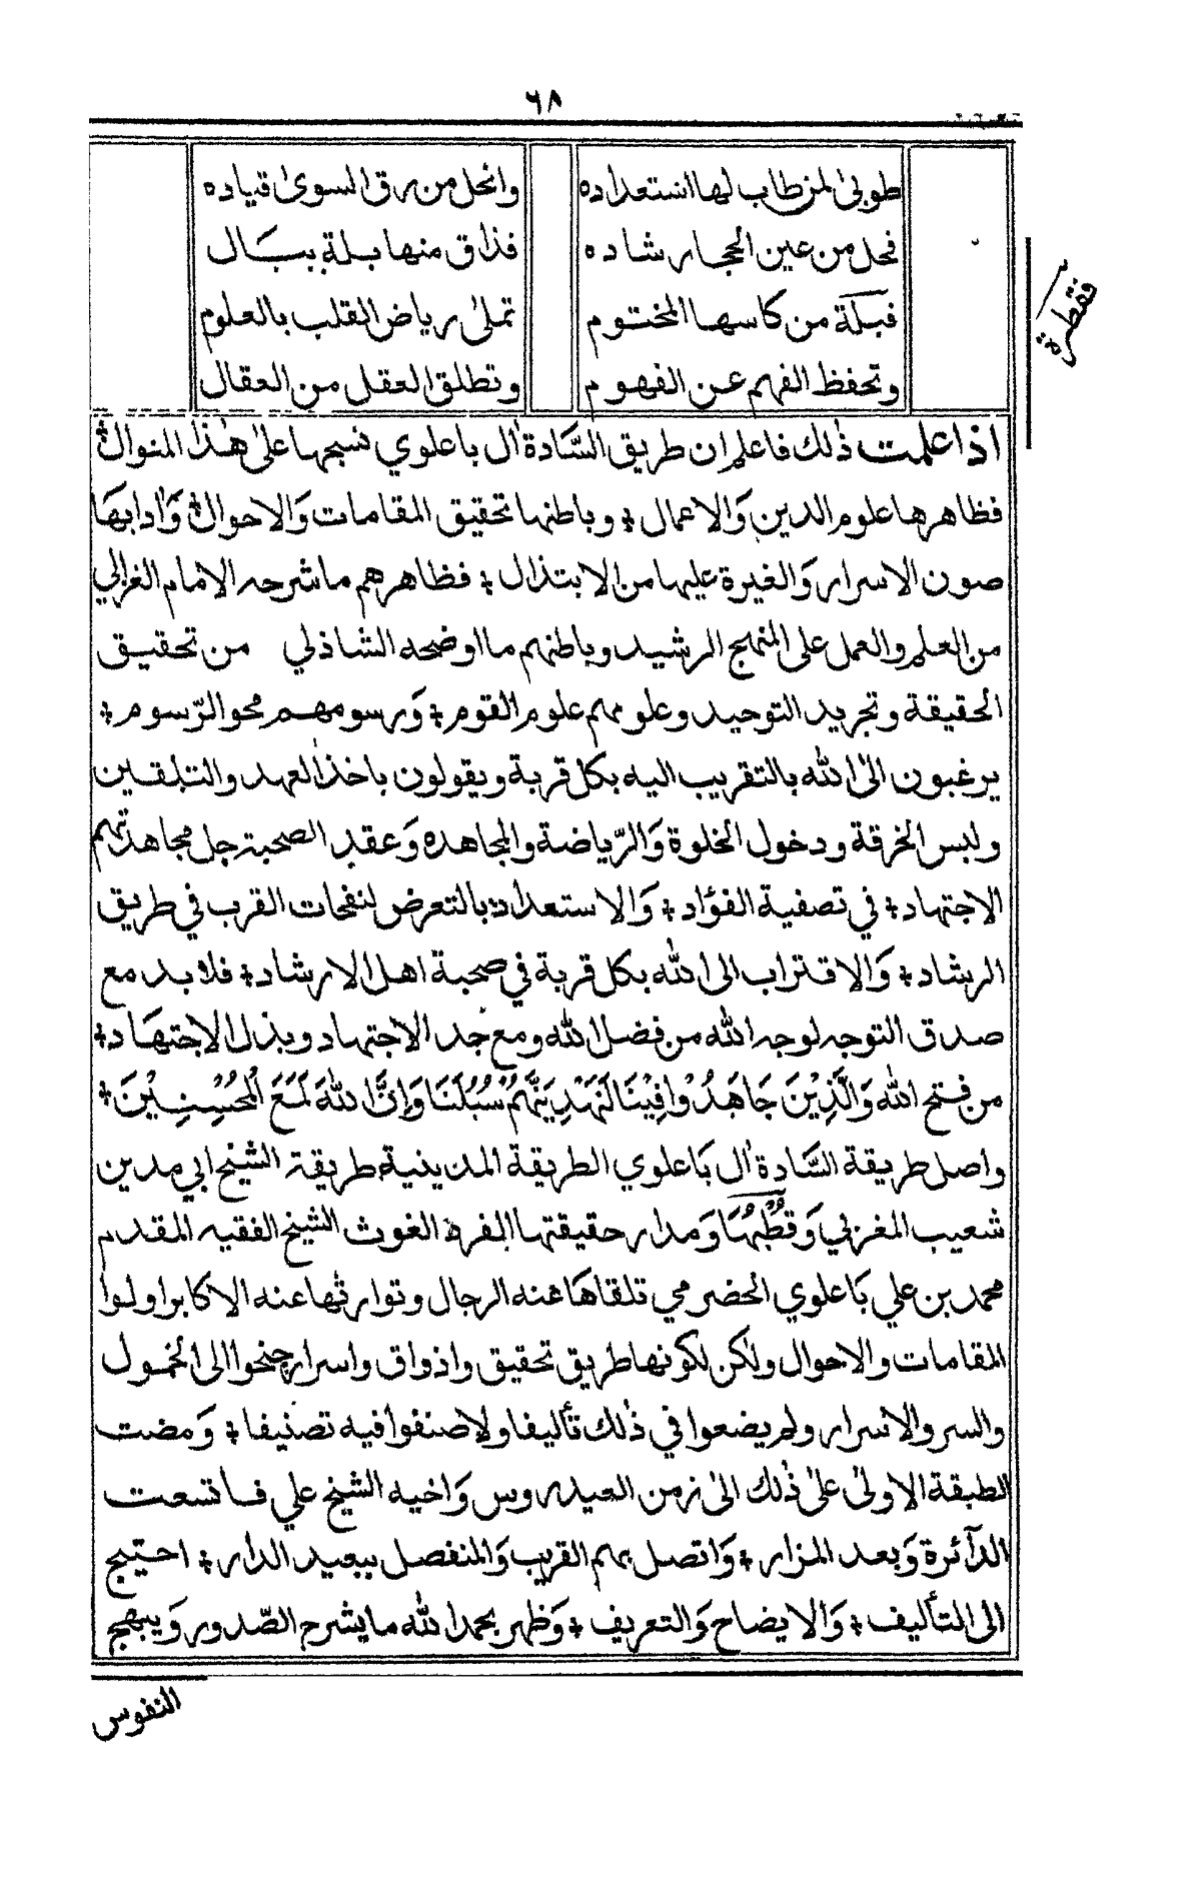 ٦٨
طوبىٰ لمن طاب لها استعداده وانحل من رق السوىٰ قياده
فحل من عين الحجا رشاده فذاق منها بلة ببَال
فبلّة من كاسها المختوم تملىٰ رياض القلب بالعلوم
وتحفظ الفهم عن الفهوم وتطلق العقل من العقال
فقطرة
اذا علمت ذٰلك فاعلم ان طريق السَّادة اٰل باعلوي نسجها علىٰ هٰذا المنوال؛
فظاهرها علوم الدين وَالاعمال؛ وباطنها تحقيق المقامات وَالاحوال؛ وَاٰدابهَا
صون الاسرار وَالغيرة عليها من الابتذال؛ فظاهرهم ما شرحه الامام الغزالي
من العلم والعمل على المنهج الرشيد وباطنهم ما اوضحه الشاذلي من تحقيق
الحقيقة وتجريد التوحيد وعلومهم علوم القوم؛ وَرسومهم محو الرّسوم؛
يرغبون الىٰ الله بالتقريب اليه بكل قربة ويقولون باخذ العهد والتلقين
ولبس الخرقة ودخول الخلوة وَالرّياضة والمجاهده وَعقد الصحبة جل مجاهدتهم
الاجتهاد؛ في تصفية الفؤاد؛ وَالاستعداد بالتعرض لنفحات القرب في طريق
الرشاد؛ وَالاقتراب الى الله بكل قربة في صحبة اهل الارشاد؛ فلا بد مع
صدق التوجه لوجه الله من فضل الله ومع جد الاجتهاد وبذل الاجتهَاد؛
من فتح الله وَالَّذِيْنَ جَاهَدُوْا فِيْنَا لَنَهْدِيَنَّهُمْ سُبُلَنَا وَاِنَّ اللهَ لَمَعَ الْمُحْسِنِيْنَ؛
واصل طريقة السَّادة اٰل بَاعلوي الطريقة المدينية طريقة الشيخ ابي مدين
شعيب المغربي وَقطْبُهَا وَمدار حقيقتها الفرد الغوث الشيخ الفقيه المقدم
محمد بن علي بَاعلوي الحضرمي تلقاهَا عنه الرجال وتوارثها عنه الاكابر اولوا
المقامات والاحوال ولكن لكونها طريق تحقيق واذواق واسرار جنحوا الى الخمول
والسر والاسرار ولم يضعوا في ذٰلك تأليفا ولا صنفوا فيه تصنيفا؛ وَمضت
الطبقة الاولىٰ علىٰ ذٰلك الىٰ زمن العيدروس وَاخيه الشيخ علي فاتسعت
الدآئرة وَبعد المزار؛ وَاتصل بهم القريب وَالمنفصل ببعيد الدار؛ احتيج
الى التأليف؛ وَالايضاح وَالتعريف؛ وَظهر بحمد الله ما يشرح الصّدور وَيبهج
النفوس